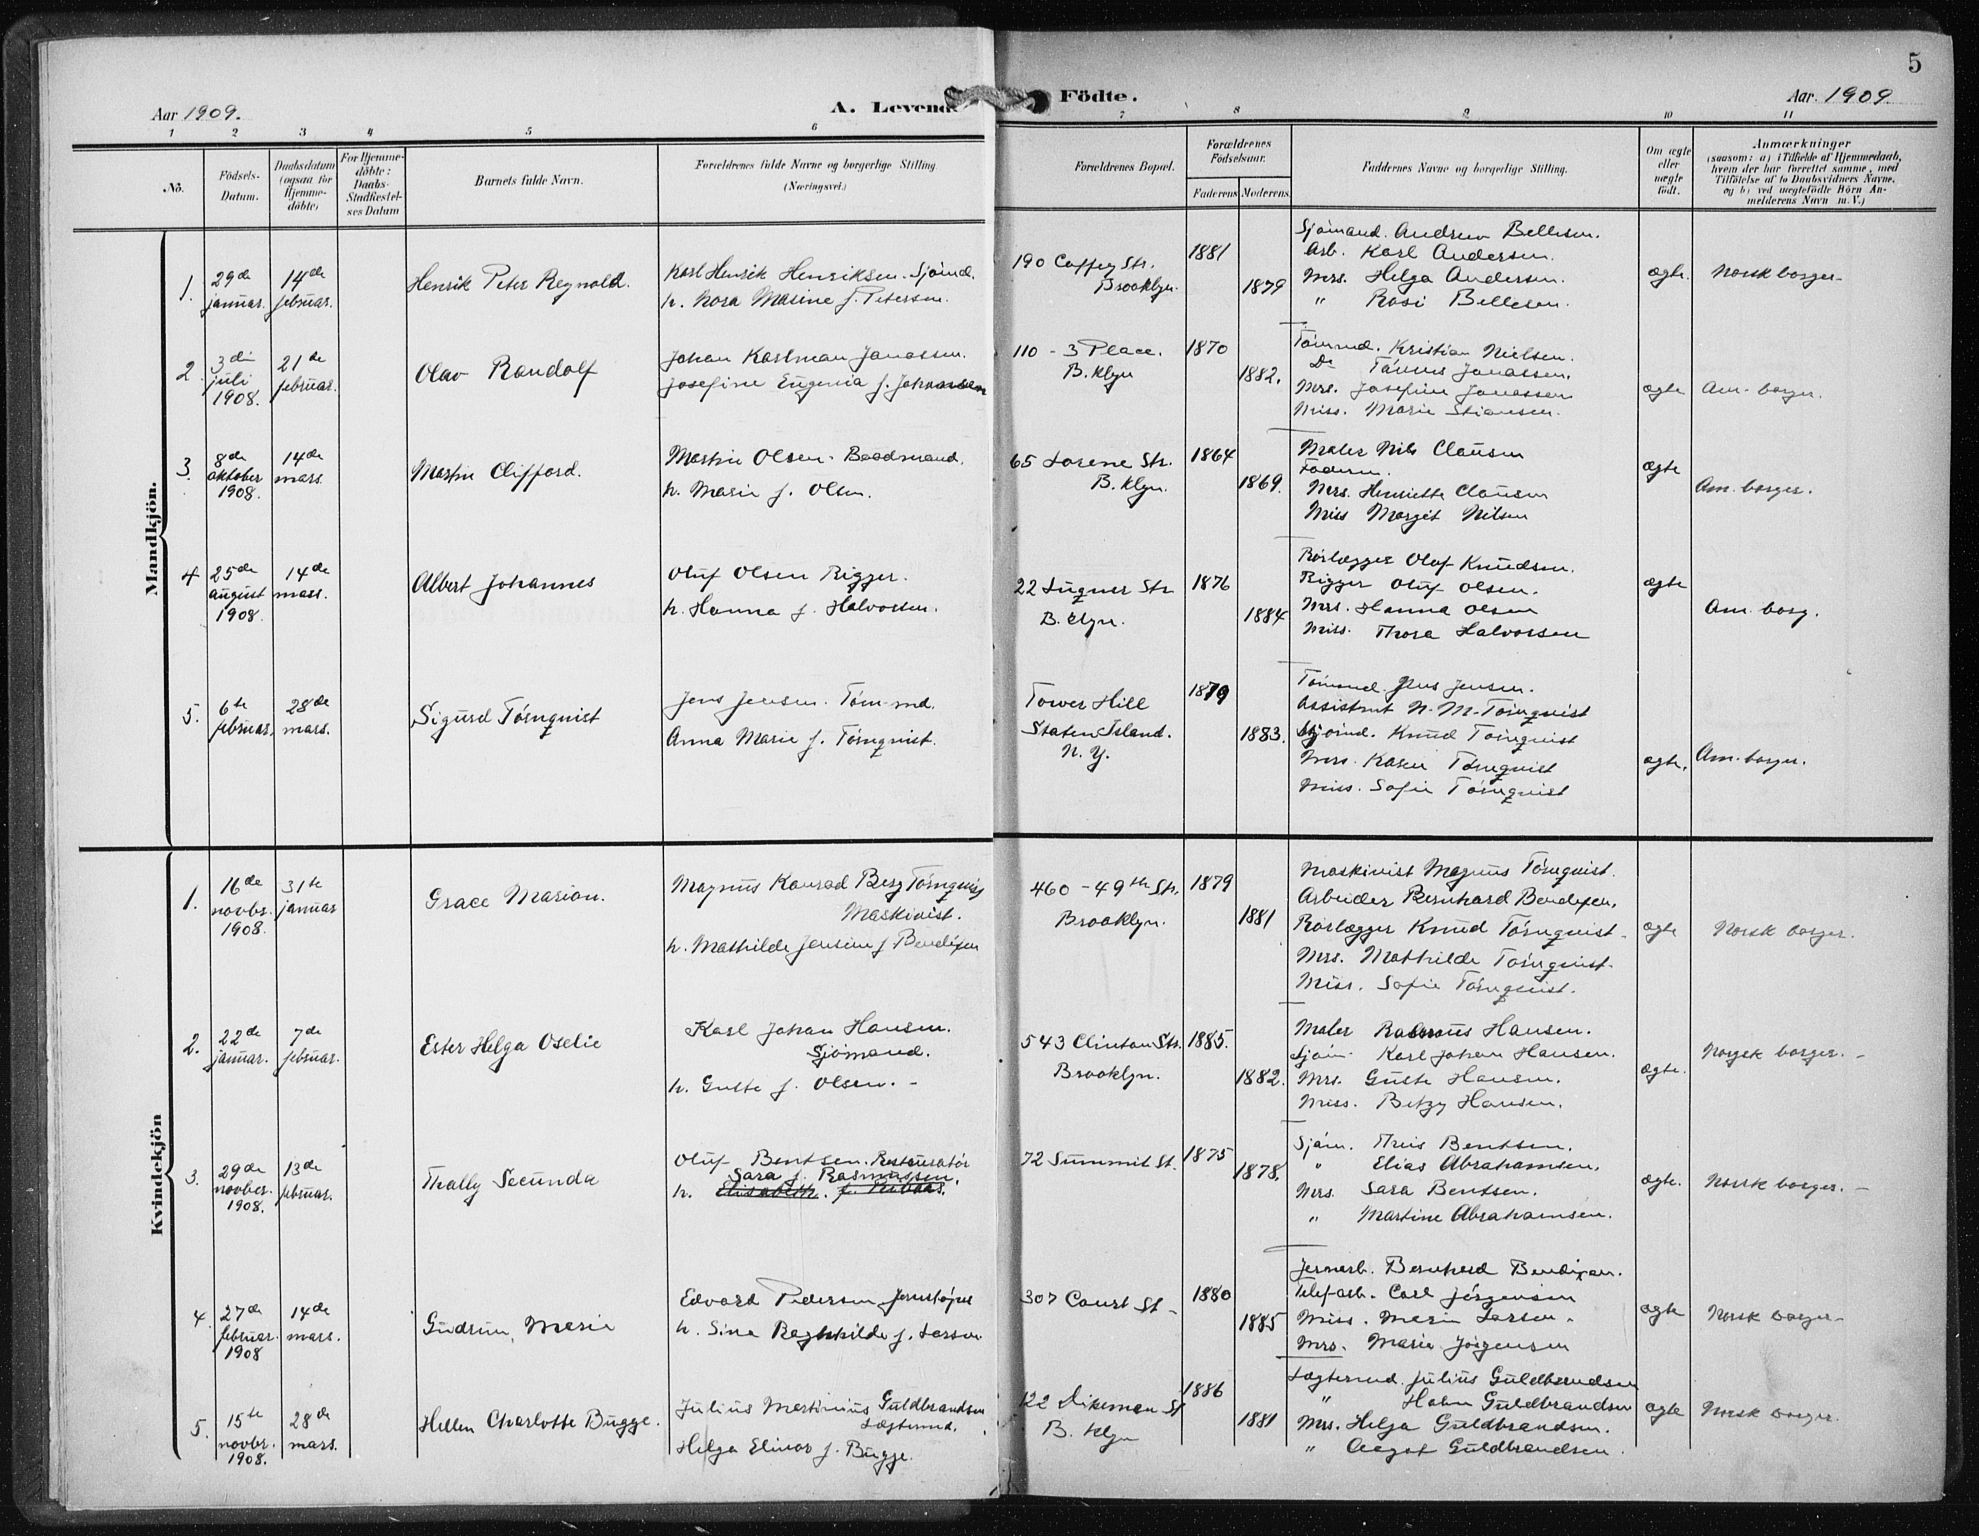 5
Aar 1909.
A. Levende Födte.
Aar 1909
1 2 3 4 5 6 7 8 9 10 11
No.
Födsels-Datum.
Daabsdatum (ogsaa for Hjemme-döbte)
For Hjemme-döbte: Daabs-Stadfæstel-ses Datum
Barnets fulde Navn.
Forældrenes fulde Navne og borgerlige Stilling. (Næringsvei.)
Forældrenes Bopæl.
Forældrenes Födselsaar.
Faderens
Moderens
Faddernes Navne og borgerlige Stilling.
Om ægte eller uægte födt.
Anmærkninger
(saasom: a) i Tilfælde af Hjemmedaab,
hvem der har forrettet samme, med
Tilföielse af to Daabsvidners Navne.
og b) ved uægtefödte Börn An-
melderens Navn m. V.)
Mandkjön.
1.
29de januar.
14de februar.
Henrik Peter Reynold.
Karl Henrik Henriksen. Sjömd.
h. Nora Marine f. Petersen.
190 Coffey Str.
Brooklyn.
1881
1879
Sjömand. Andrew Bellesen.
Arb. Karl Andersen.
Mrs. Helga Andersen.
" Rosi Bellesen.
ægte.
Norsk borger-
2.
3die juli 1908.
21de februar.
Olav Randolf
Johan Karlman Jonassen.
Josefine Eugenia f. Johansen
110 - 3 Place.
B.klyn
1870
1882.
Tömmd. Kristian Nielsen.
Do Tönnes Jonassen.
Mrs. Josefine Jonassen
Miss. Marie Stiansen.
ægte
Am. borger.
3.
8de oktober 1908.
14de mars.
Martin Clifford.
Martin Olsen. Baadmand.
h. Marie f. Olsen.
65 Lorene Str.
B.klyn.
1864
1869.
Maler Nils Clausen
Faderen.
Mrs. Henriette Clausen
Miss Margit Nilsen
ægte
Am. borger.
4
25de august 1908.
14de mars.
Albert Johannes
Oluf Olsen Rigger.
h. Hanna f. Halvorsen.
22 Luquer Str
B.klyn.
1876
1884
Rörlægger Olaf Knudsen.
Rigger Oluf Olsen.
Mrs. Hanna Olsen
Miss. Thora Halvorsen
ægte
Am. borg.
5.
6te februar.
28de mars.
Sigurd Törnquist
Jens Jensen. Töm-md.
Anna Marie f. Törnquist.
Tower Hill
Staten Island.
N.Y.
1879
1883.
Tömmd. Jens Jensen.
Assistent N. M. Törnquist
Sjömd. Knud Törnquist
Mrs. Karen Törnquist
Miss. Sofie Törnquist
ægte.
Am. borger.
Kvindekjön
1.
16de novbr. 1908.
31te januar
Grace Marion.
Magnus Konrad Berg Törnquist
Maskinist.
h. Mathilde Jensine f. Bendixen
460 - 49th Str.
Brooklyn.
1879
1881
Maskinist Magnus Törnquist.
Arbeider Bernhard Bendixen.
Rörlægger Knud Törnquist.
Mrs. Mathilde Törnquist.
Miss. Sofie Törnquist.
ægte
Norsk borger.
2.
22de januar.
7de februar.
Ester Helga Oselie
Karl Johan Hansen.
Sjömand.
h. Guste f. Olsen. -
543 Clinton Str.
Brooklyn.
1885.
1882.
Maler Rasmus Hansen.
Sjöm. Karl Johan Hansen.
Mrs. Guste Hansen.
Miss. Betzy Hansen.
ægte.
Norsk borger. -
3.
29de novber. 1908.
13de februar.
Thally Secunda
Oluf Bentsen. Restauratör
Sara f. Rasmussen.
h. Elisabeth.
72 Summit St.
1875
1878.
Sjöm. Theis Bentsen.
" Elias Abrahamsen.
Mrs Sara Bentsen.
" Martine Abrahamsen.
ægte.
Norsk borger. -
4.
27de februar. 1908
14de mars.
Gudrun, Marie
Edvard Pedersen
h. Sina Raghhilde f. Larsen
307 Court St -
1880
1885
Jernarb. Bernhard Bendixen.
Telefarb. Carl Jörgensen
Miss. Marie Larsen.
Mrs. Marie Jörgensen
ægte
Norsk borger-
5.
15te novbr. 1908.
28de mars.
Hellen Charlotte Bugge.
Julius Martinius Guldbrandsen
Lægtermd.
Helga Elinor f. Bugge.
122 Dikeman St
B.klyn
1886
1881
Lægtermd. Julius Guldbrandsen
" Guldbrandsen
Mrs. Helga Guldbrandsen.
" Aagot Guldbrandsen.
ægte
Norsk borger.